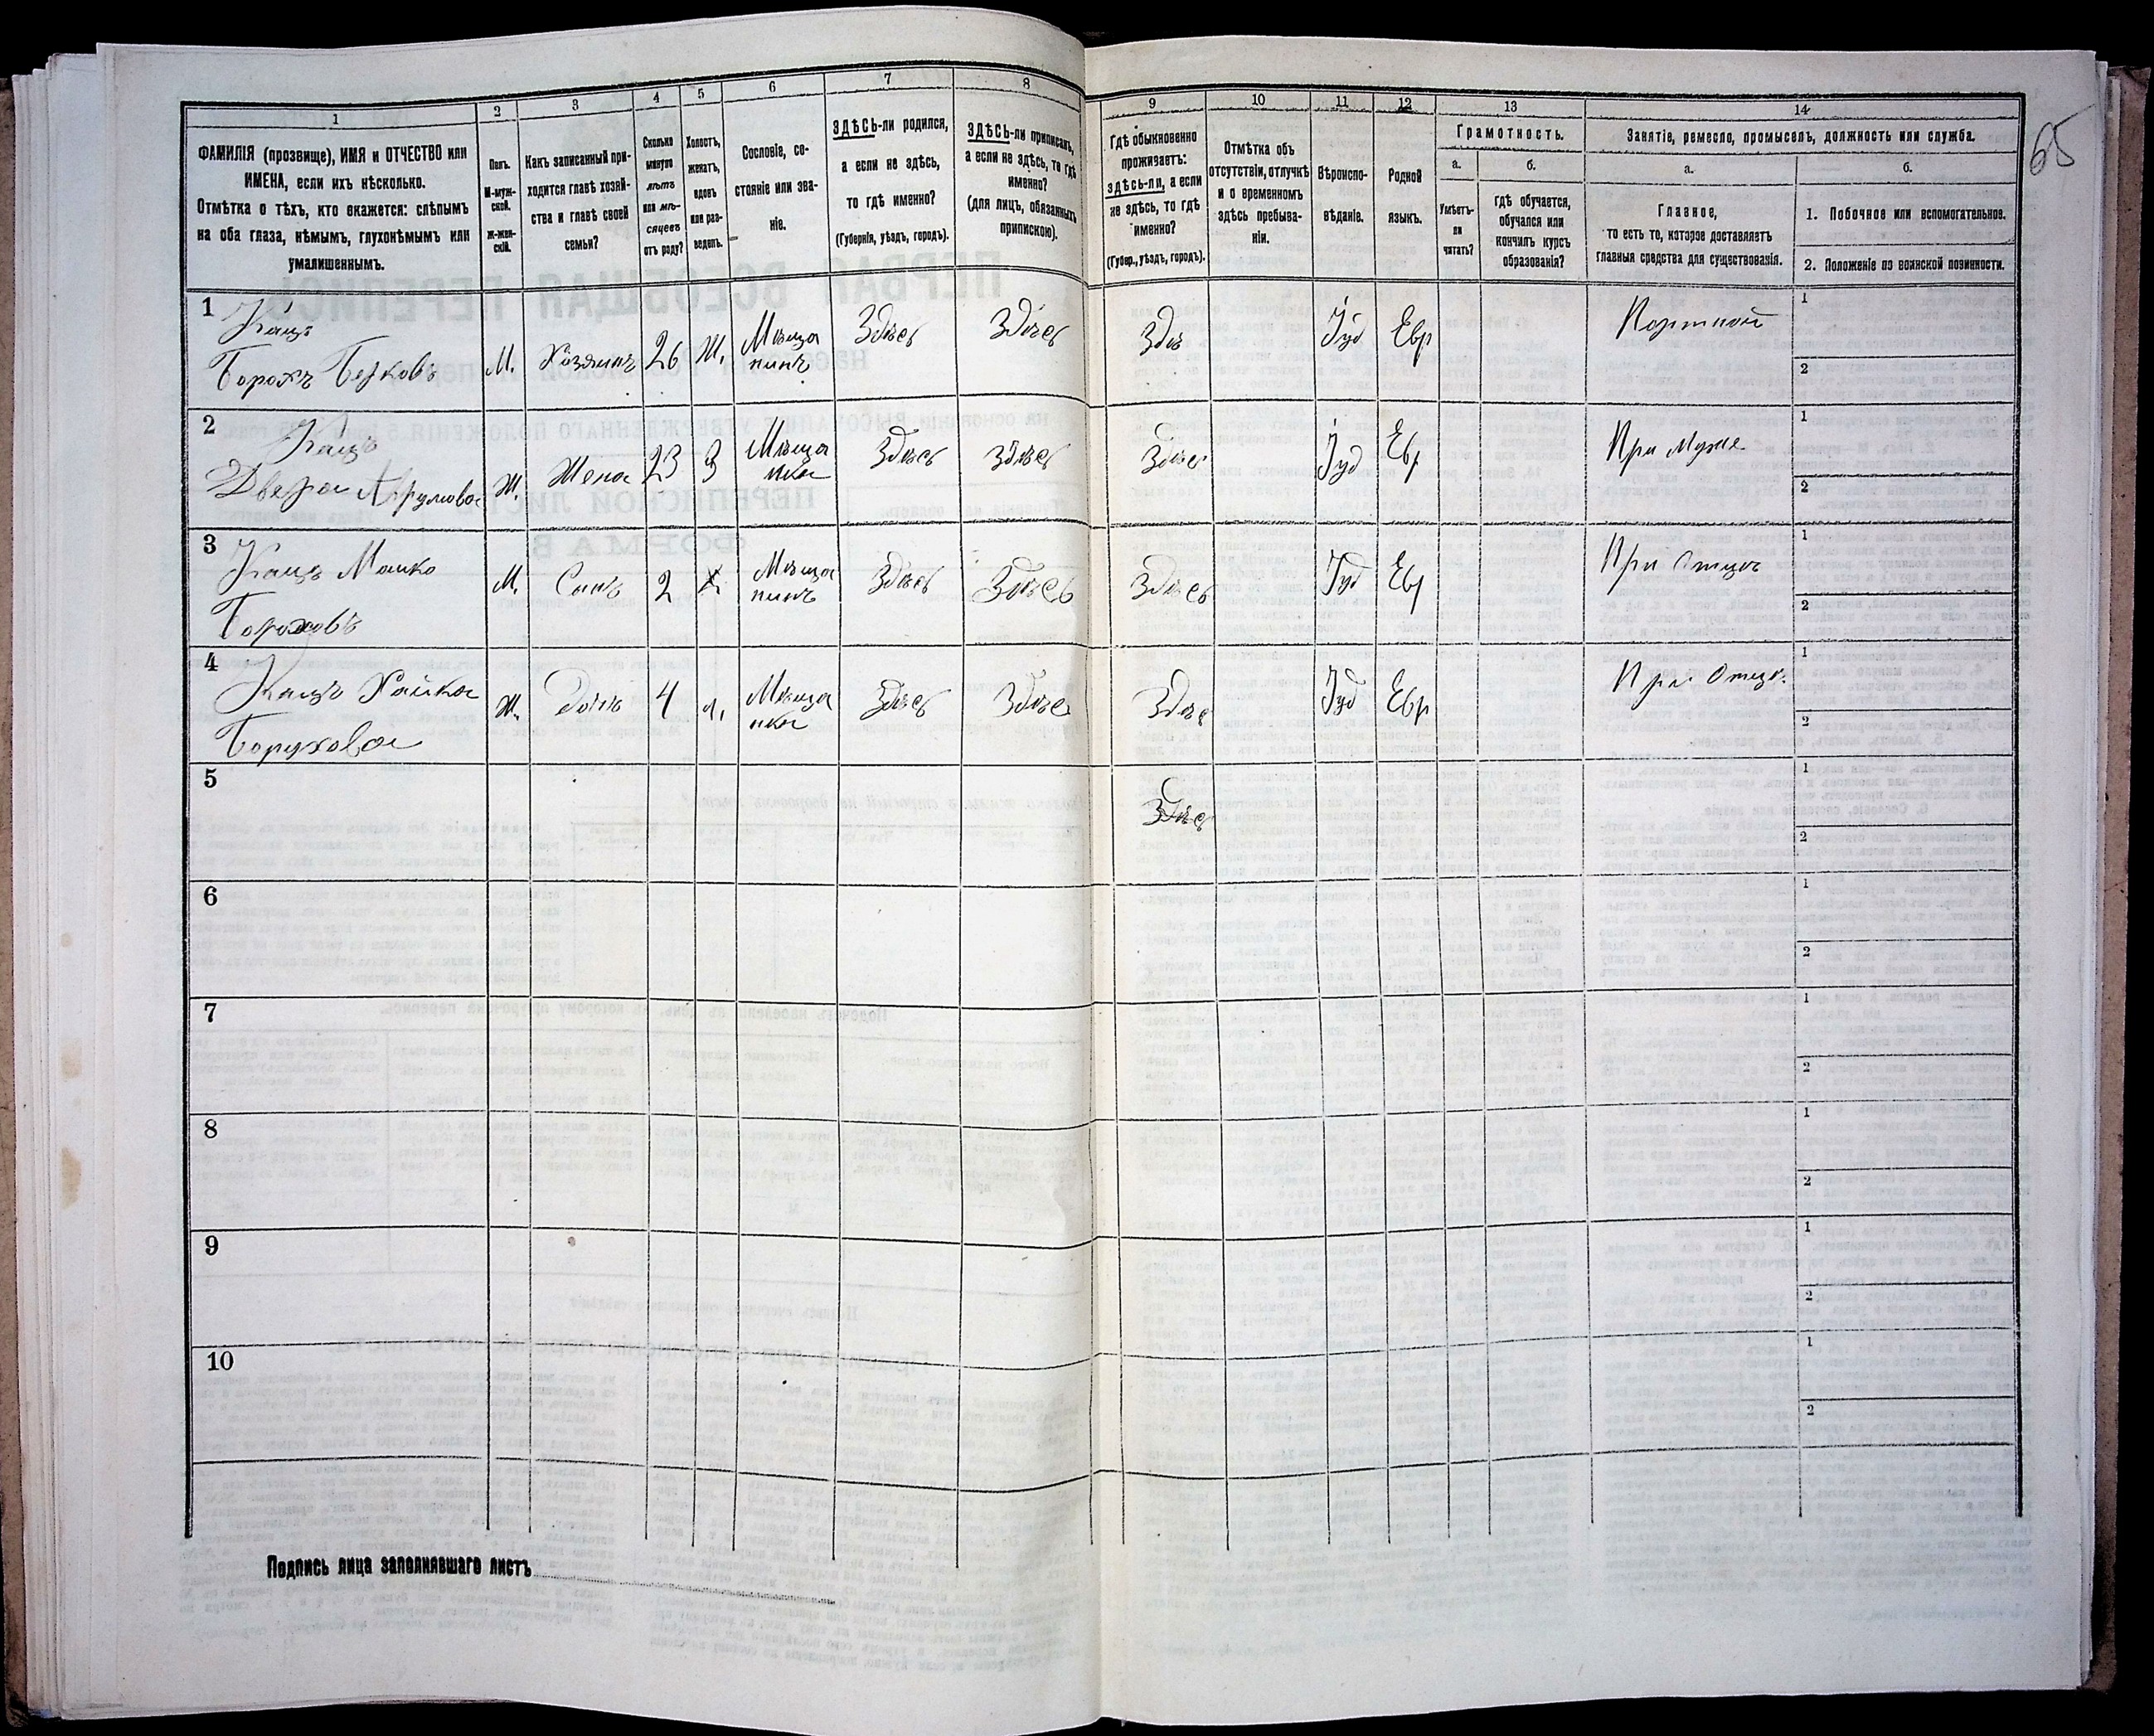 65
1
2
3
4
5
6
7
8
9
10
11
12
13
14
ФАМИЛІЯ (прозвище), ИМЯ и ОТЧЕСТВО или
ИМЕНА, если ихъ нѣсколько.
Отмѣтка о тѣхъ, кто окажется: слѣпымъ
на оба глаза, нѣмымъ, глухонѣмымъ или
умалишеннымъ.
Полъ.
М-муж-
ской.
ж-жен-
скій.
Какъ записанный при-
ходится главѣ хозяй-
ства и главѣ своей
семьи?
Сколько
минуло
лѣтъ
или мѣ-
сяцевъ
отъ роду?
Холостъ,
женатъ,
вдовъ
или раз-
веденъ.
Сословіе, со-
стояніе или зва-
ніе.
ЗДѢСЬ-ли родился,
а если не здѣсь,
то гдѣ именно?
(Губернія, уѣздъ, городъ).
ЗДѢСЬ-ли приписанъ,
а если не здѣсь, то гдѣ
именно?
(для лицъ, обязанныхъ
припискою).
Гдѣ обыкновенно
проживаетъ:
здѣсь-ли, а если
не здѣсь, то гдѣ
именно?
(Губер., уѣздъ, городъ).
Отмѣтка объ
отсутствіи, отлучкѣ
и о временномъ
здѣсь пребыва-
ніи.
Вѣроиспо-
вѣданіе.
Родной
языкъ.
Грамотность.
а.
Умѣетъ-
ли
читать?
б.
Гдѣ обучается,
обучался или
кончилъ курсъ
образованія?
Занятіе, ремесло, промыселъ, должность или служба.
а.
Главное,
то есть то, которое доставляетъ
главныя средства для существованія.
б.
1. Побочное или вспомогательное.
2. Положеніе по воинской повинности.
1 Кацъ
Борохъ Берковъ М. Хозяинъ 26 Ж. Мѣща
нинъ Здѣсь Здѣсь Здѣ Іуд Евр Портной 1
2
2 Кацъ
Двера Ж. Жена 23 З Мѣща
нка Здѣсь Здѣсь Здѣс Іуд Евр При Муже 1
2
3 Кацъ Мошко
Бороховъ М. Сынъ 2 Х Мѣща
нинъ Здѣсь Здѣсь Здѣсь Іуд Евр При Отцѣ 1
2
4 Кацъ Хайка
Борухова Ж. Дочь 4 Мѣща
нка Здѣсь Здѣс Здѣс Іуд Евр При Отцѣ. 1
2
5 Здѣс 1
2
6 1
2
7 1
2
8 1
2
9 1
2
10 1
2
Подпись лица заполнявшаго листъ